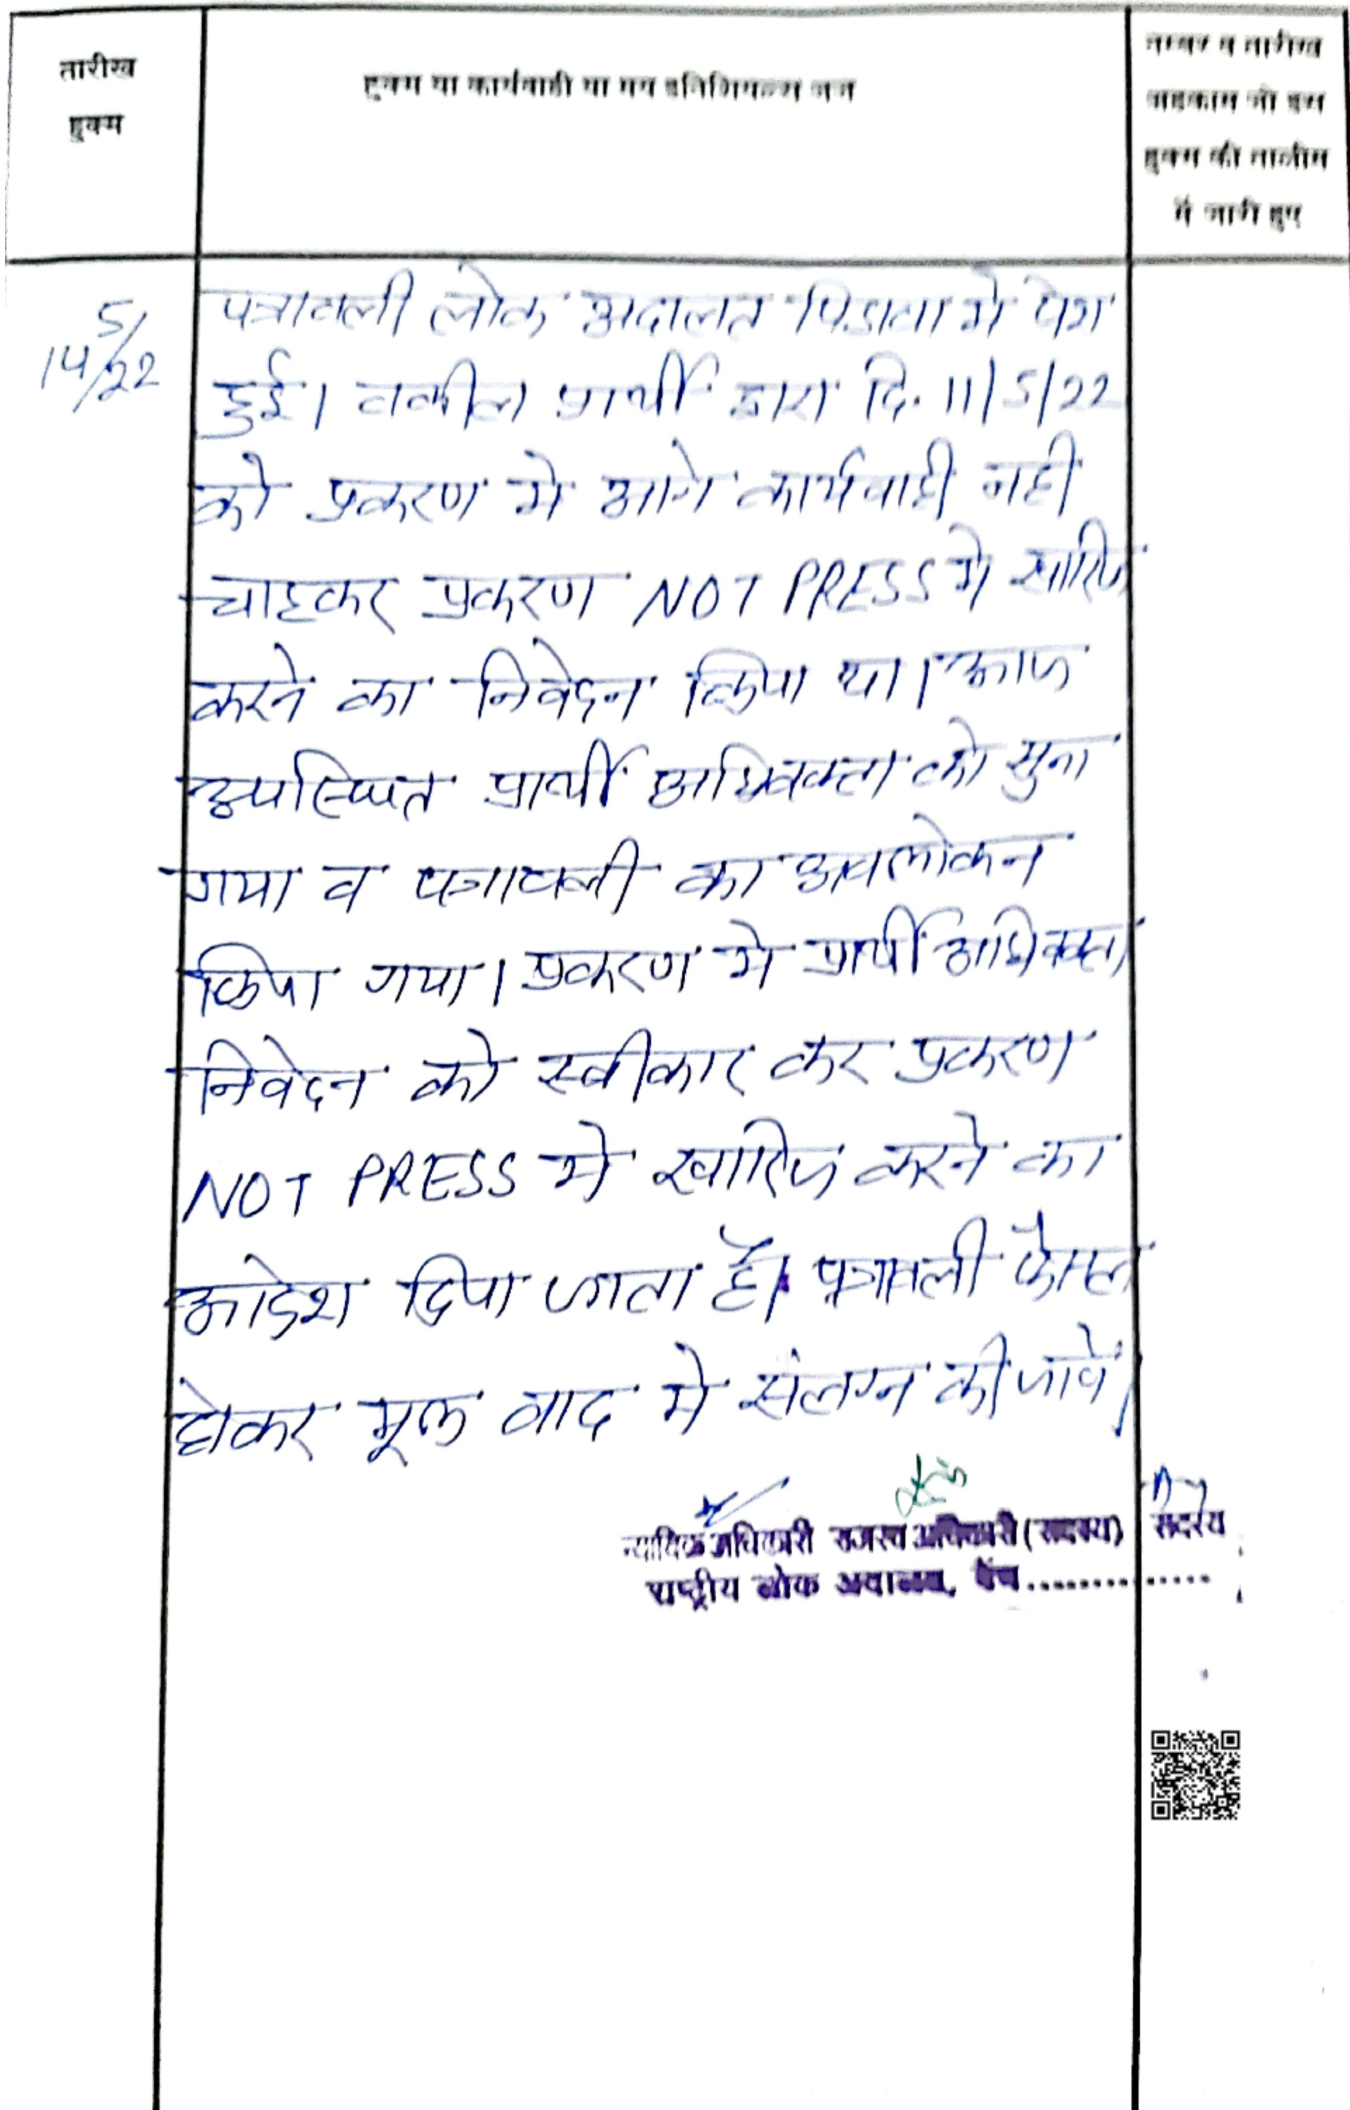 तारीख
हुक्म
हुक्म या कार्यवाही या मय इनिशियल्स जज
नम्बर व तारीख
अहकाम जो इस
हुक्म की तालीम
में जारी हुए
14/5/22
पत्रावली लोक अदालत पिडावा मे पेश
हुई। वकील प्रार्थी द्वारा दि. 11/5/22
को प्रकरण मे आगे कार्यवाही नही
चाहकर प्रकरण NOT PRESS मे खारिज
करने का निवेदन किया था। आज
उपस्थित प्रार्थी अधिवक्ता को सुना
गया व पत्रावली का अवलोकन
किया गया। प्रकरण मे प्रार्थी अधिवक्ता
निवेदन को स्वीकार कर प्रकरण
NOT PRESS मे खारिज करने का
आदेश दिया जाता है। पत्रावली फैसल
होकर मूल वाद मे संलग्न की जावे।
न्यायिक अधिकारी राजस्व अधिकारी (सदस्य) सदस्य
राष्ट्रीय लोक अदालत, बैंच..............